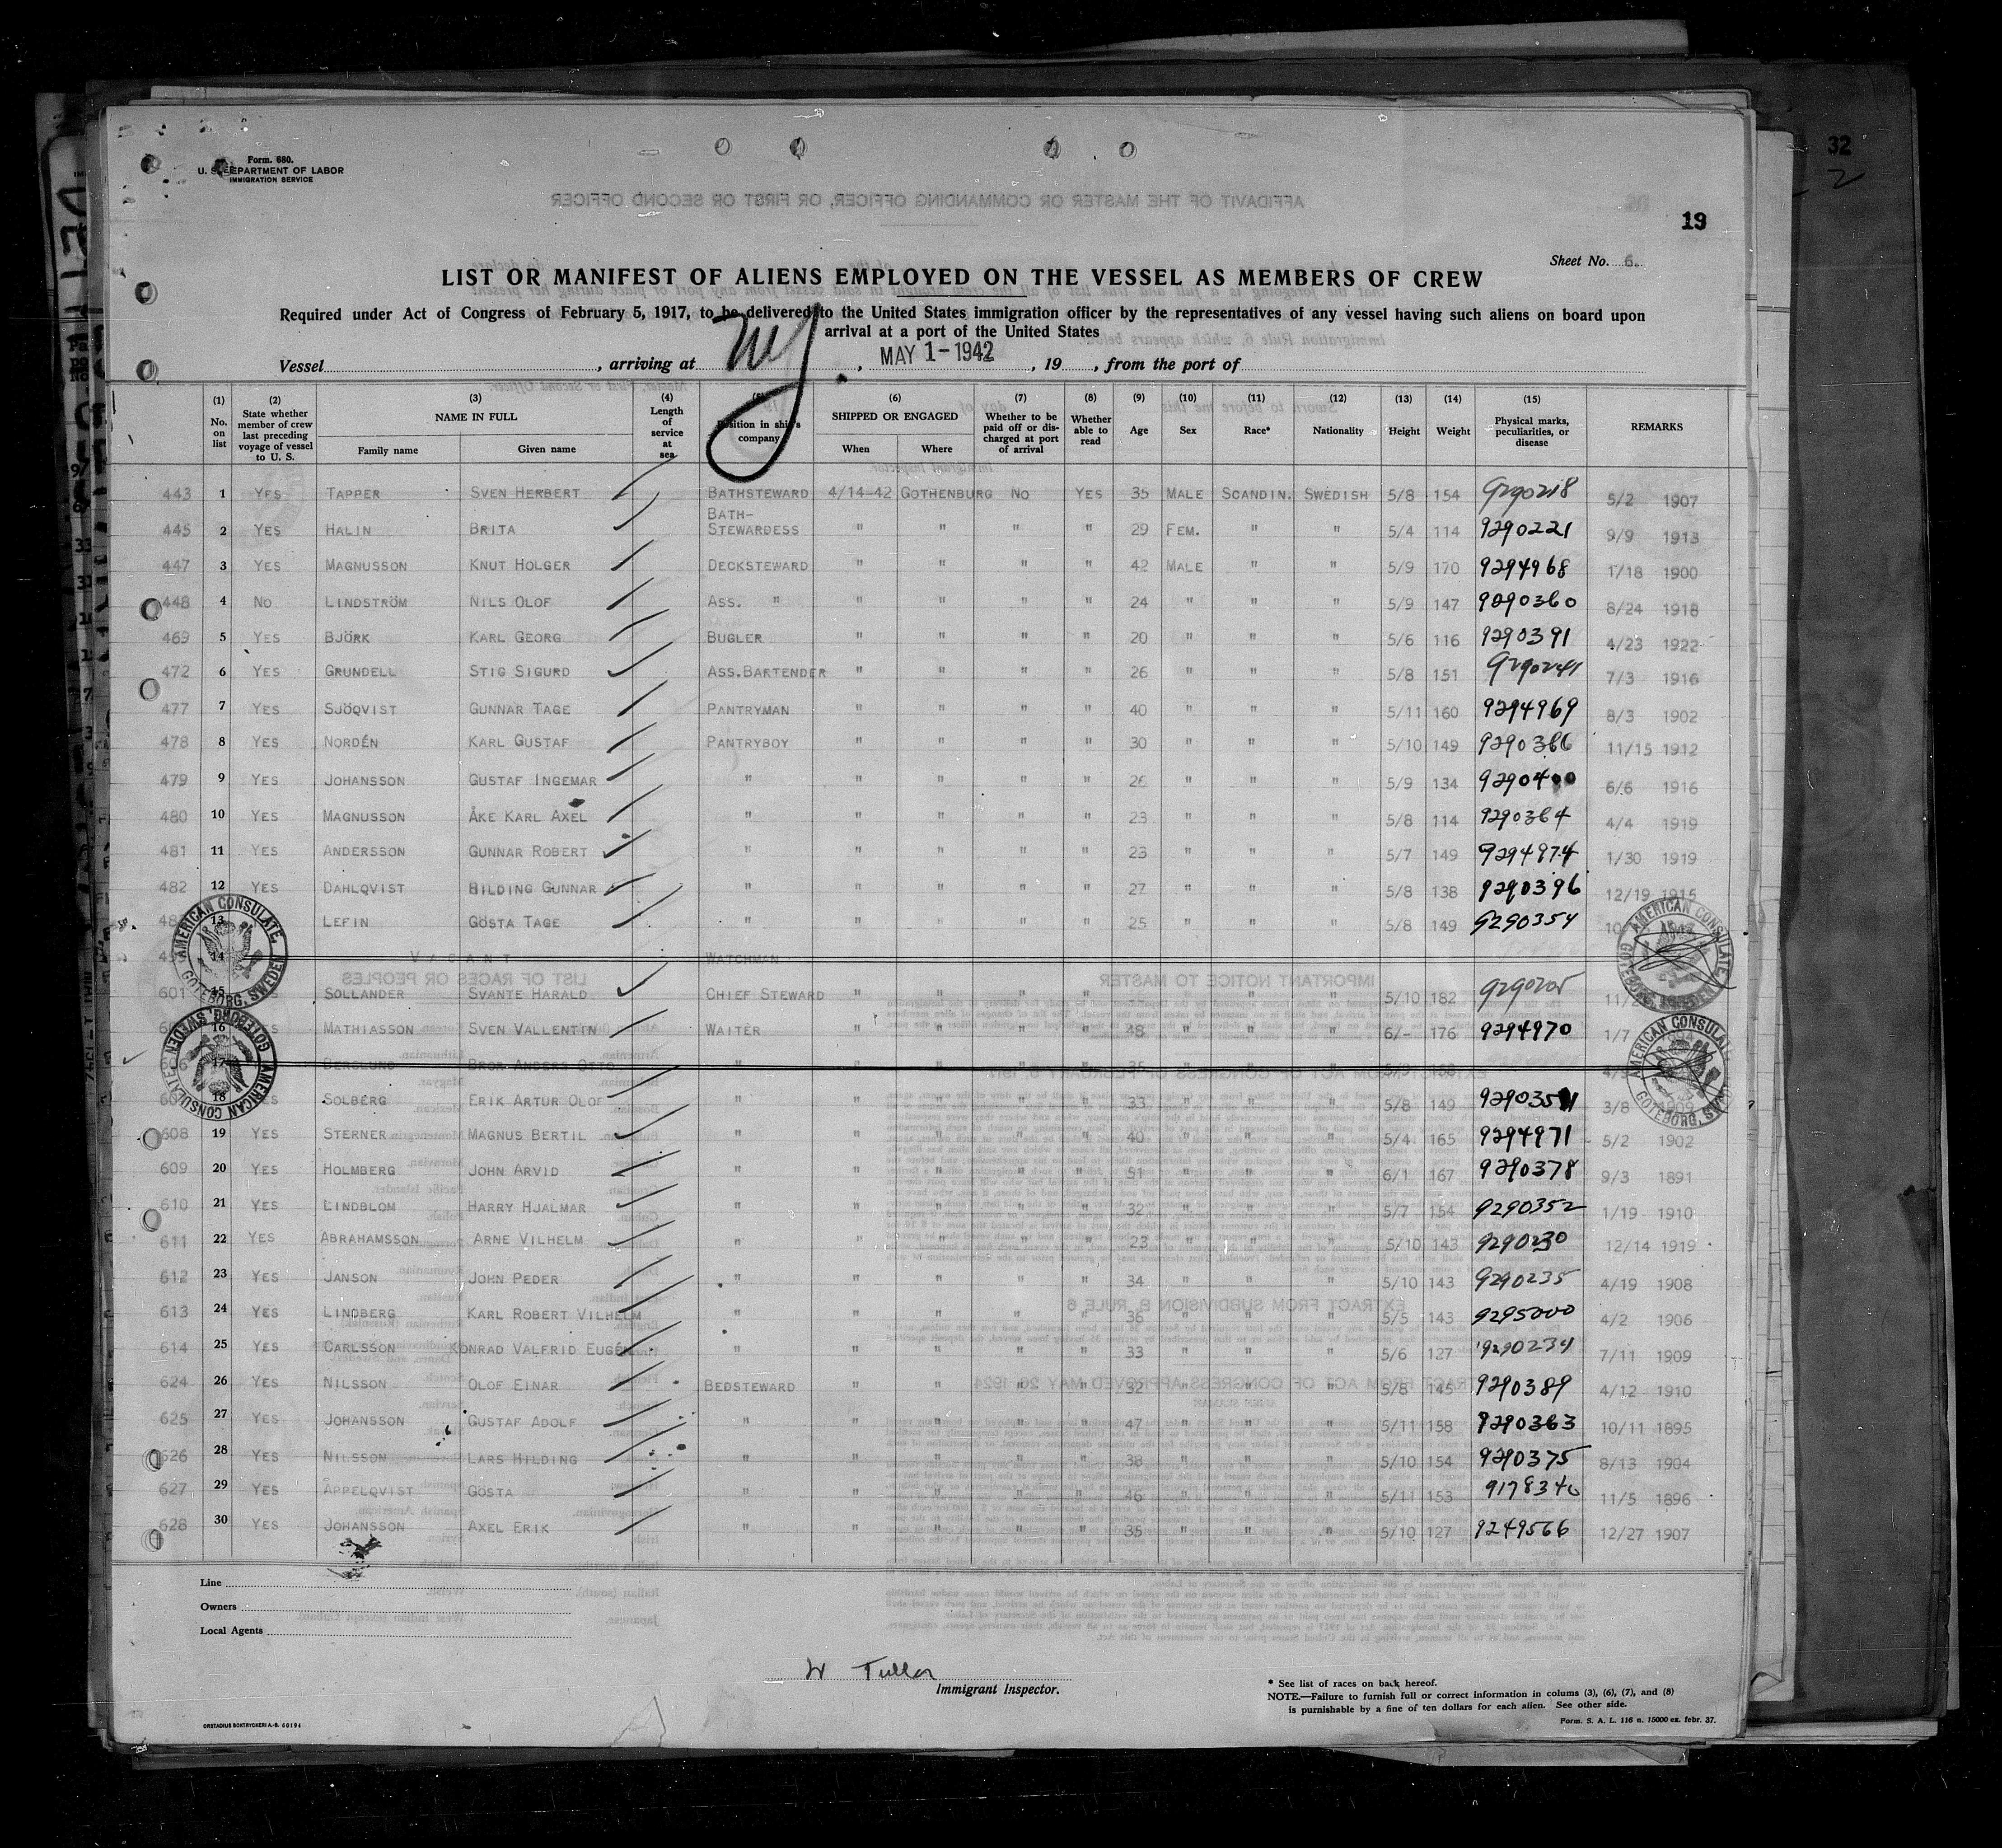 32
2
Form. 680.
U. S. DEPARTMENT OF LABOR
IMMIGRATION SERVICE
19
Sheet No. 6.
LIST OR MANIFEST OF ALIENS EMPLOYED ON THE VESSEL AS MEMBERS OF CREW
Required under Act of Congress of February 5, 1917, to be delivered to the United States immigration officer by the representatives of any vessel having such aliens on board upon
arrival at a port of the United States
Vessel , arriving at NY. , MAY 1-1942 , 19 , from the port of
(1) No. on list (2) State whether member of crew last preceding voyage of vessel to U. S. (3) NAME IN FULL Family name Given name (4) Length of service at sea (5) Position in ship's company (6) SHIPPED OR ENGAGED When Where (7) Whether to be paid off or discharged at port of arrival (8) Whether able to read (9) Age (10) Sex (11) Race* (12) Nationality (13) Height (14) Weight (15) Physical marks, peculiarities, or disease REMARKS
443 1 YES TAPPER SVEN HERBERT BATHSTEWARD 4/14-42 GOTHENBURG NO YES 35 MALE SCANDIN. SWEDISH 5/8 154 9290218 5/2 1907
445 2 YES HALIN BRITA BATH-STEWARDESS " " " " 29 FEM. " " 5/4 114 9290221 9/9 1913
447 3 YES MAGNUSSON KNUT HOLGER DECKSTEWARD " " " " 42 MALE " " 5/9 170 9294968 1/18 1900
448 4 NO LINDSTRÖM NILS OLOF ASS. " " " " " 24 " " " 5/9 147 9290360 8/24 1918
469 5 YES BJÖRK KARL GEORG BUGLER " " " " 20 " " " 5/6 116 9290391 4/23 1922
472 6 YES GRUNDELL STIG SIGURD ASS.BARTENDER " " " " 26 " " " 5/8 151 9290241 7/3 1916
477 7 YES SJÖQVIST GUNNAR TAGE PANTRYMAN " " " " 40 " " " 5/11 160 9294969 8/3 1902
478 8 YES NORDÉN KARL GUSTAF PANTRYBOY " " " " 30 " " " 5/10 149 9290386 11/15 1912
479 9 YES JOHANSSON GUSTAF INGEMAR " " " " " 26 " " " 5/9 134 9290400 6/6 1916
480 10 YES MAGNUSSON ÅKE KARL AXEL " " " " " 23 " " " 5/8 114 9290364 4/4 1919
481 11 YES ANDERSSON GUNNAR ROBERT " " " " " 23 " " " 5/7 149 9294974 1/30 1919
482 12 YES DAHLQVIST HILDING GUNNAR " " " " " 27 " " " 5/8 138 9290396 12/19 1915
13 LEFIN GÖSTA TAGE " " " " " 25 " " " 5/8 149 9290354
14 VACANT WATCHMAN
601 15 SOLLANDER SVANTE HARALD CHIEF STEWARD " " " " " " " 5/10 182 9290205
16 MATHIASSON SVEN VALLENTIN WAITER " " " " 48 " " " 6/- 176 9294970 1/7
17 BERGLUND BROR ANDERS OTTO " " " " " 35 " " " 5/9 158
18 SOLBERG ERIK ARTUR OLOF " " " " " 33 " " " 5/8 149 3/8 1909
608 19 YES STERNER MAGNUS BERTIL " " " " " 40 " " " 5/4 165 9294971 5/2 1902
609 20 YES HOLMBERG JOHN ARVID " " " " " 51 " " " 6/1 167 9290378 9/3 1891
610 21 YES LINDBLOM HARRY HJALMAR " " " " " 32 " " " 5/7 154 9290352 1/19 1910
611 22 YES ABRAHAMSSON ARNE VILHELM " " " " " 23 " " " 5/10 143 9290230 12/14 1919
612 23 YES JANSON JOHN PEDER " " " " " 34 " " " 5/10 143 9290235 4/19 1908
613 24 YES LINDBERG KARL ROBERT VILHELM " " " " " 36 " " " 5/5 143 9295000 4/2 1906
614 25 YES CARLSSON KONRAD VALFRID EUGÉN " " " " " 33 " " " 5/6 127 9290234 7/11 1909
624 26 YES NILSSON OLOF EINAR BEDSTEWARD " " " " 32 " " " 5/8 145 9290389 4/12 1910
625 27 YES JOHANSSON GUSTAF ADOLF " " " " " 47 " " " 5/11 158 9290363 10/11 1895
626 28 YES NILSSON LARS HILDING " " " " " 38 " " " 5/10 154 9290375 8/13 1904
627 29 YES APPELQVIST GÖSTA " " " " " 46 " " " 5/11 153 9178340 11/5 1896
628 30 YES JOHANSSON AXEL ERIK " " " " " 35 " " " 5/10 127 9249566 12/27 1907
AMERICAN CONSULATE, GOTEBORG, SWEDEN
AMERICAN CONSULATE, GOTEBORG, SWEDEN
AMERICAN CONSULATE, GOTEBORG, SWEDEN
AMERICAN CONSULATE, GOTEBORG, SWEDEN
Line
Owners
Local Agents
W Tullar
Immigrant Inspector.
* See list of races on back hereof.
NOTE.—Failure to furnish full or correct information in colums (3), (6), (7), and (8)
is purnishable by a fine of ten dollars for each alien. See other side.
ORSTADIUS BOKTRYCKERI A.-B. 60194
Form. S. A. L. 116 n. 15000 ex. febr. 37.